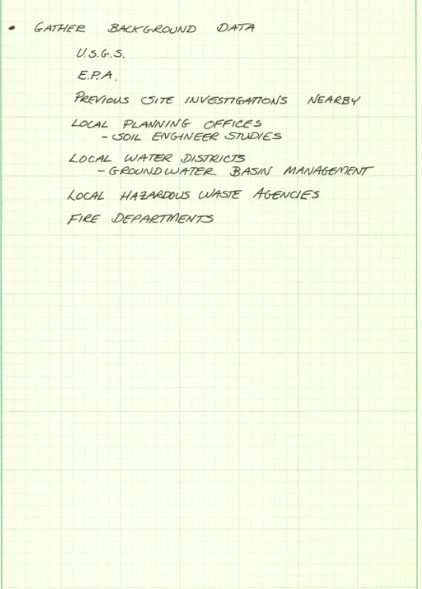 • GATHER BACKGROUND DATA
U.S.G.S.
E.P.A.
PREVIOUS SITE INVESTIGATIONS NEARBY
LOCAL PLANNING OFFICES
- SOIL ENGINEER STUDIES
LOCAL WATER DISTRICTS
- GROUNDWATER BASIN MANAGEMENT
LOCAL HAZARDOUS WASTE AGENCIES
FIRE DEPARTMENTS